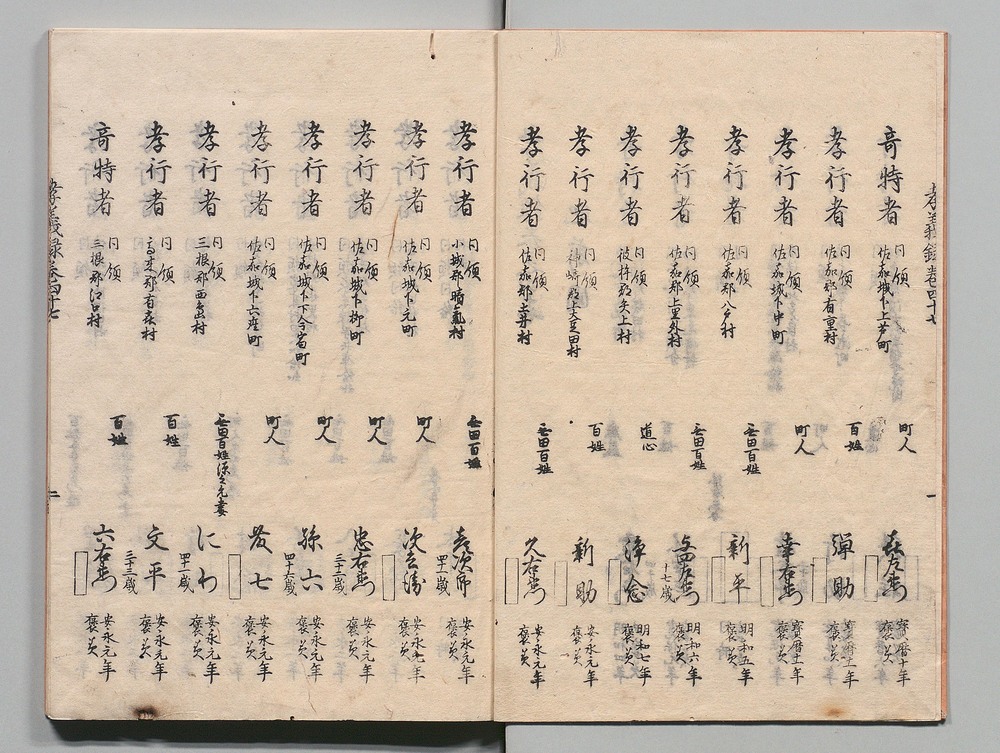 孝義録巻四十七
一
奇特者 同領 佐嘉城下上芦町 町人 喜左衛門 寳暦十年 褒美
孝行者 同領 佐嘉郡有重村 百姓 弾助 褒美
孝行者 同領 佐嘉城下中町 町人 幸右衛門 寳暦十二年 褒美
孝行者 同領 佐嘉郡八戸村 無田百姓 新平 明和五年 褒美
孝行者 同領 佐嘉郡上里外村 無田百姓 十七歳 明和六年 褒美
孝行者 同領 彼杵郡矢上村 道心 浄念 明和七年 褒美
孝行者 同領 神崎郡 田村 百姓 新助 安永元年 褒美
孝行者 同領 佐嘉郡 井村 無田百姓 久右衛門 安永元年 褒美
孝行者 同領 小城郡晴氣村 無田百姓 喜次郎 四十一歳 安永元年 褒美
孝行者 同領 佐嘉城下元町 町人 安永元年 褒美
孝行者 同領 佐嘉城下柳町 町人 忠右衛門 三十一歳 安永元年 褒美
孝行者 同領 佐嘉城下下今宿町 町人 孫六 四十六歳 安永元年 褒美
孝行者 同領 佐嘉城下六座町 町人 七 安永元年 褒美
孝行者 同領 三根郡西嶋村 無田百姓 妻 にわ 四十一歳 安永元年 褒美
孝行者 同領 村 百姓 文平 三十三歳 安永元年 褒美
奇特者 同領 三根郡江口村 百姓 六右衛門 安永元年 褒美
孝義録巻四十七
二